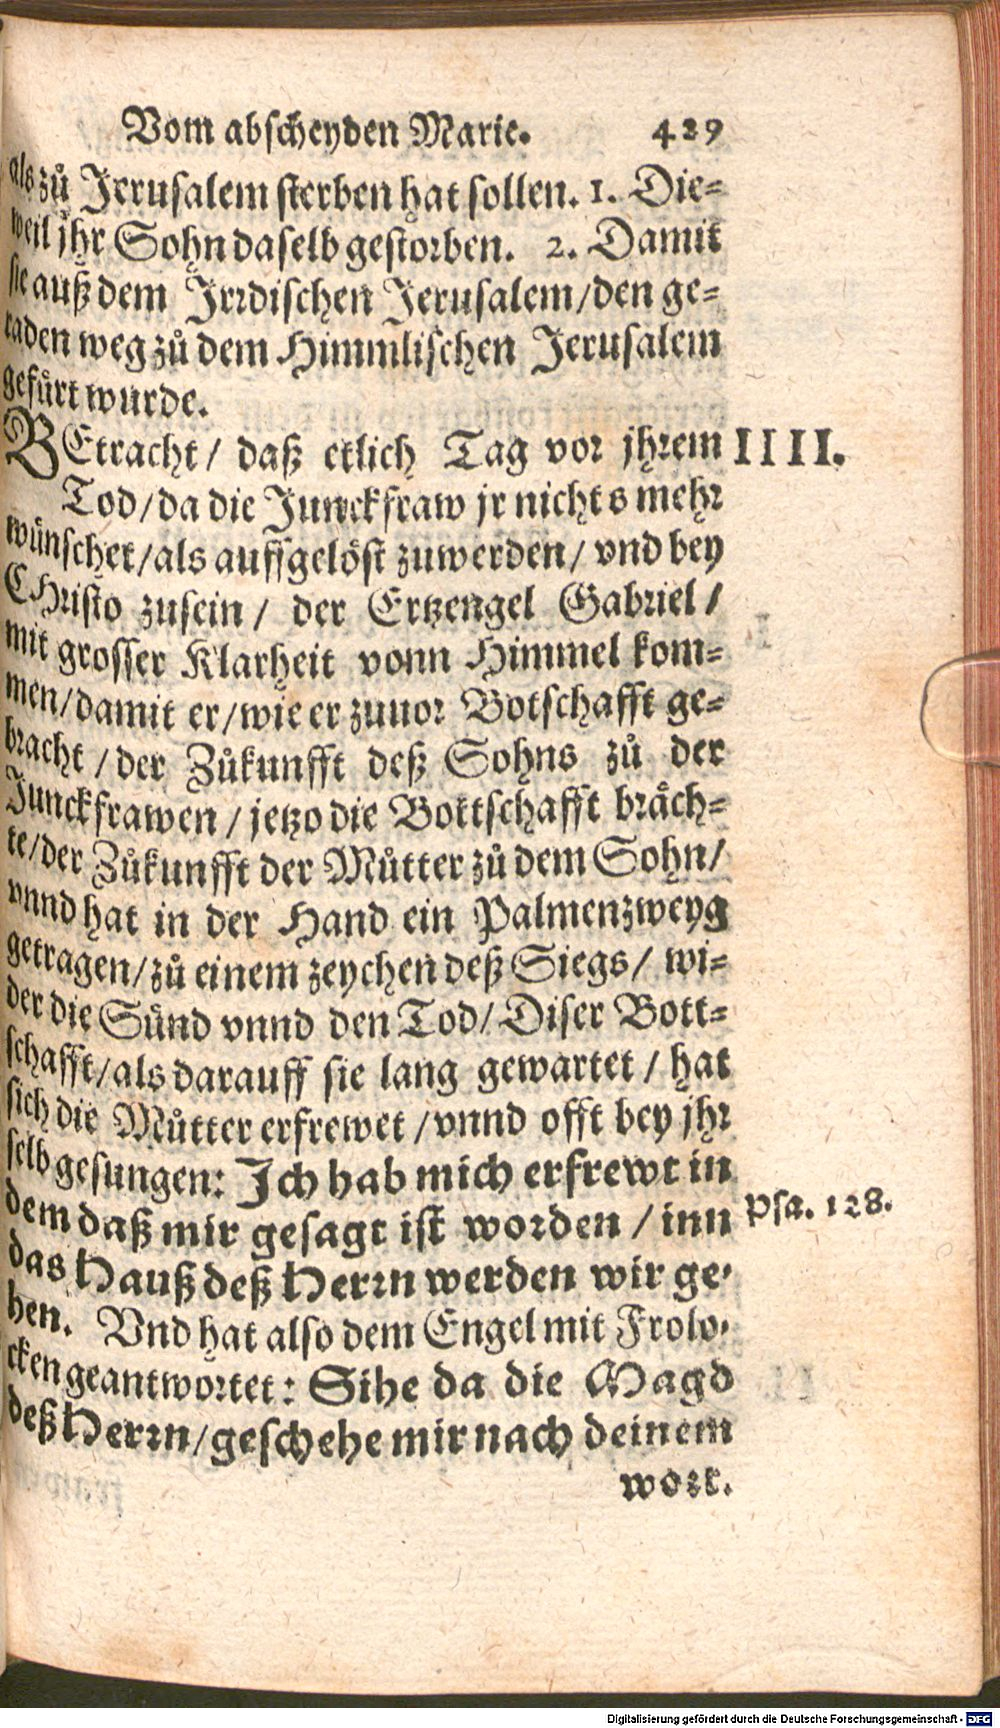 Vom abscheyden Marie. 429
als zů Jerusalem sterben hat sollen. 1. Die-
weil jhr Sohn daselb gestorben. 2. Damit
sie auß dem Jrrdischen Jerusalem/den ge-
raden weg zů dem Himmlischen Jerusalem
gefürt wurde.
BEtracht/ daß etlich Tag vor jhrem IIII.
Tod/da die Junckfraw jr nichts mehr
wünschet/als auffgelöst zuwerden/ vnd bey
CHristo zusein/ der Ertzengel Gabriel/
mit grosser Klarheit vonn Himmel kom-
men/damit er/wie er zuuor Botschafft ge-
bracht/der Zůkunfft deß Sohns zů der
Junckfrawen/jetzo die Bottschafft bräch-
te/der Zůkunfft der Můtter zů dem Sohn/
vnnd hat in der Hand ein Palmenzweyg
getragen/zů einem zeychen deß Siegs/ wi-
der die Sünd vnnd den Tod/Diser Bott-
schafft/als darauff sie lang gewartet/hat
sich die Můtter erfrewet/vnnd offt bey jhr
selb gesungen: Ich hab mich erfrewt in
dem daß mir gesagt ist worden/inn Psa. 128.
das Hauß deß Herrn werden wir ge-
hen. Vnd hat also dem Engel mit Frolo-
cken geantwortet: Sihe da die Magd
deß Herrn/geschehe mir nach deinem
wort.
Digitalisierung gefördert durch die Deutsche Forschungsgemeinschaft - DFG